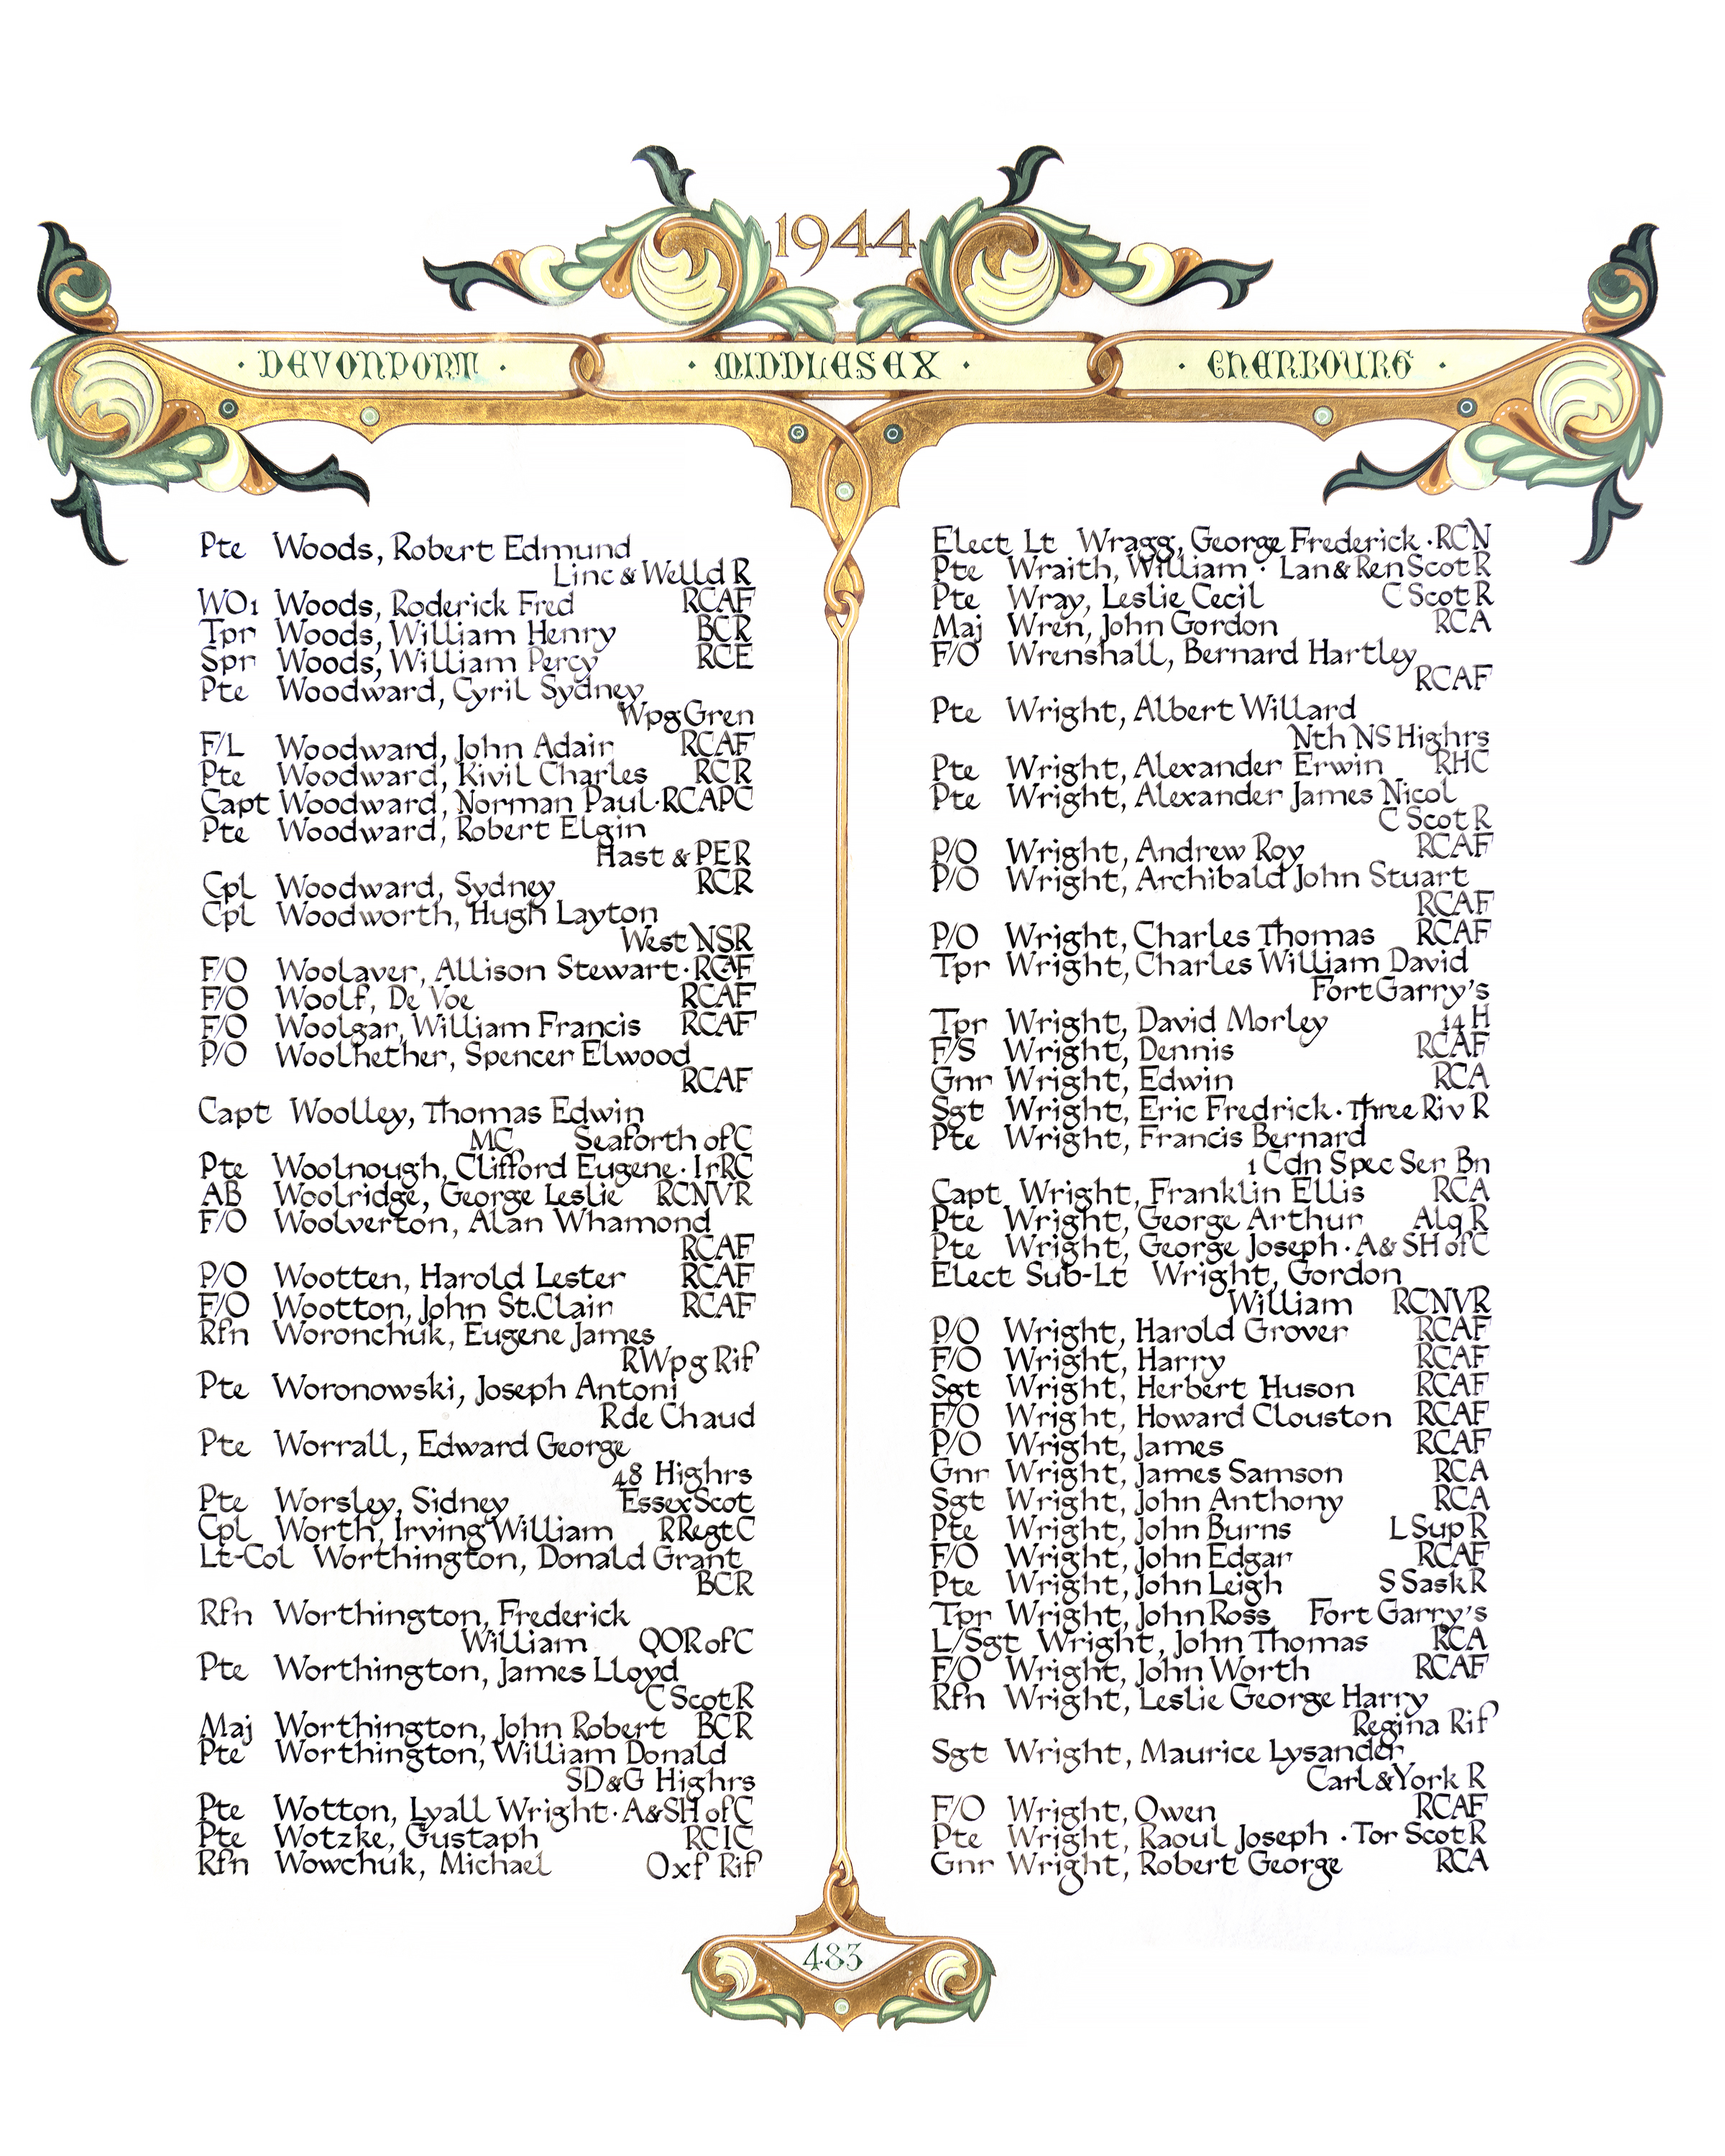 1944
· DEVONPORT · · MIDDLESEX · · CHERBOURG ·
Pte Woods, Robert Edmund
Linc & Welld R
WO1 Woods, Roderick Fred RCAF
Tpr Woods, William Henry BCR
Spr Woods, William Percy RCE
Pte Woodward, Cyril Sydney
Wpg Gren
F/L Woodward, John Adair RCAF
Pte Woodward, Kivil Charles RCR
Capt Woodward, Norman Paul · RCAPC
Pte Woodward, Robert Elgin
Hast & PER
Cpl Woodward, Sydney RCR
Cpl Woodworth, Hugh Layton
West NSR
F/O Woolaver, Allison Stewart · RCAF
F/O Woolf, De Voe RCAF
F/O Woolgar, William Francis RCAF
P/O Woolhether, Spencer Elwood
RCAF
Capt Woolley, Thomas Edwin
MC Seaforth of C
Pte Woolnough, Clifford Eugene · IrRC
AB Woolridge, George Leslie RCNVR
F/O Woolverton, Alan Whamond
RCAF
P/O Wootten, Harold Lester RCAF
F/O Wootton, John St.Clair RCAF
Rfn Woronchuk, Eugene James
RWpg Rif
Pte Woronowski, Joseph Antoni
R de Chaud
Pte Worrall, Edward George
48 Highrs
Pte Worsley, Sidney Essex Scot
Cpl Worth, Irving William RRegtC
Lt-Col Worthington, Donald Grant
BCR
Rfn Worthington, Frederick
William QOR of C
Pte Worthington, James Lloyd
C Scot R
Maj Worthington, John Robert BCR
Pte Worthington, William Donald
SD&G Highrs
Pte Wotton, Lyall Wright · A&SH of C
Pte Wotzke, Gustaph RCIC
Rfn Wowchuk, Michael Oxf Rif
Elect Lt Wragg, George Frederick · RCN
Pte Wraith, William · Lan & Ren Scot R
Pte Wray, Leslie Cecil C Scot R
Maj Wren, John Gordon RCA
F/O Wrenshall, Bernard Hartley
RCAF
Pte Wright, Albert Willard
Nth NS Highrs
Pte Wright, Alexander Erwin RHC
Pte Wright, Alexander James Nicol
C Scot R
P/O Wright, Andrew Roy RCAF
P/O Wright, Archibald John Stuart
RCAF
P/O Wright, Charles Thomas RCAF
Tpr Wright, Charles William David
Fort Garry's
Tpr Wright, David Morley 14 H
F/S Wright, Dennis RCAF
Gnr Wright, Edwin RCA
Sgt Wright, Eric Fredrick · Three Riv R
Pte Wright, Francis Bernard
1 Cdn Spec Ser Bn
Capt Wright, Franklin Ellis RCA
Pte Wright, George Arthur Alq R
Pte Wright, George Joseph · A & SH of C
Elect Sub-Lt Wright, Gordon
William RCNVR
P/O Wright, Harold Grover RCAF
F/O Wright, Harry RCAF
Sgt Wright, Herbert Huson RCAF
F/O Wright, Howard Clouston RCAF
P/O Wright, James RCAF
Gnr Wright, James Samson RCA
Sgt Wright, John Anthony RCA
Pte Wright, John Burns L Sup R
F/O Wright, John Edgar RCAF
Pte Wright, John Leigh S Sask R
Tpr Wright, John Ross Fort Garry's
L/Sgt Wright, John Thomas RCA
F/O Wright, John Worth RCAF
Rfn Wright, Leslie George Harry
Regina Rif
Sgt Wright, Maurice Lysander
Carl & York R
F/O Wright, Owen RCAF
Pte Wright, Raoul Joseph · Tor Scot R
Gnr Wright, Robert George RCA
483